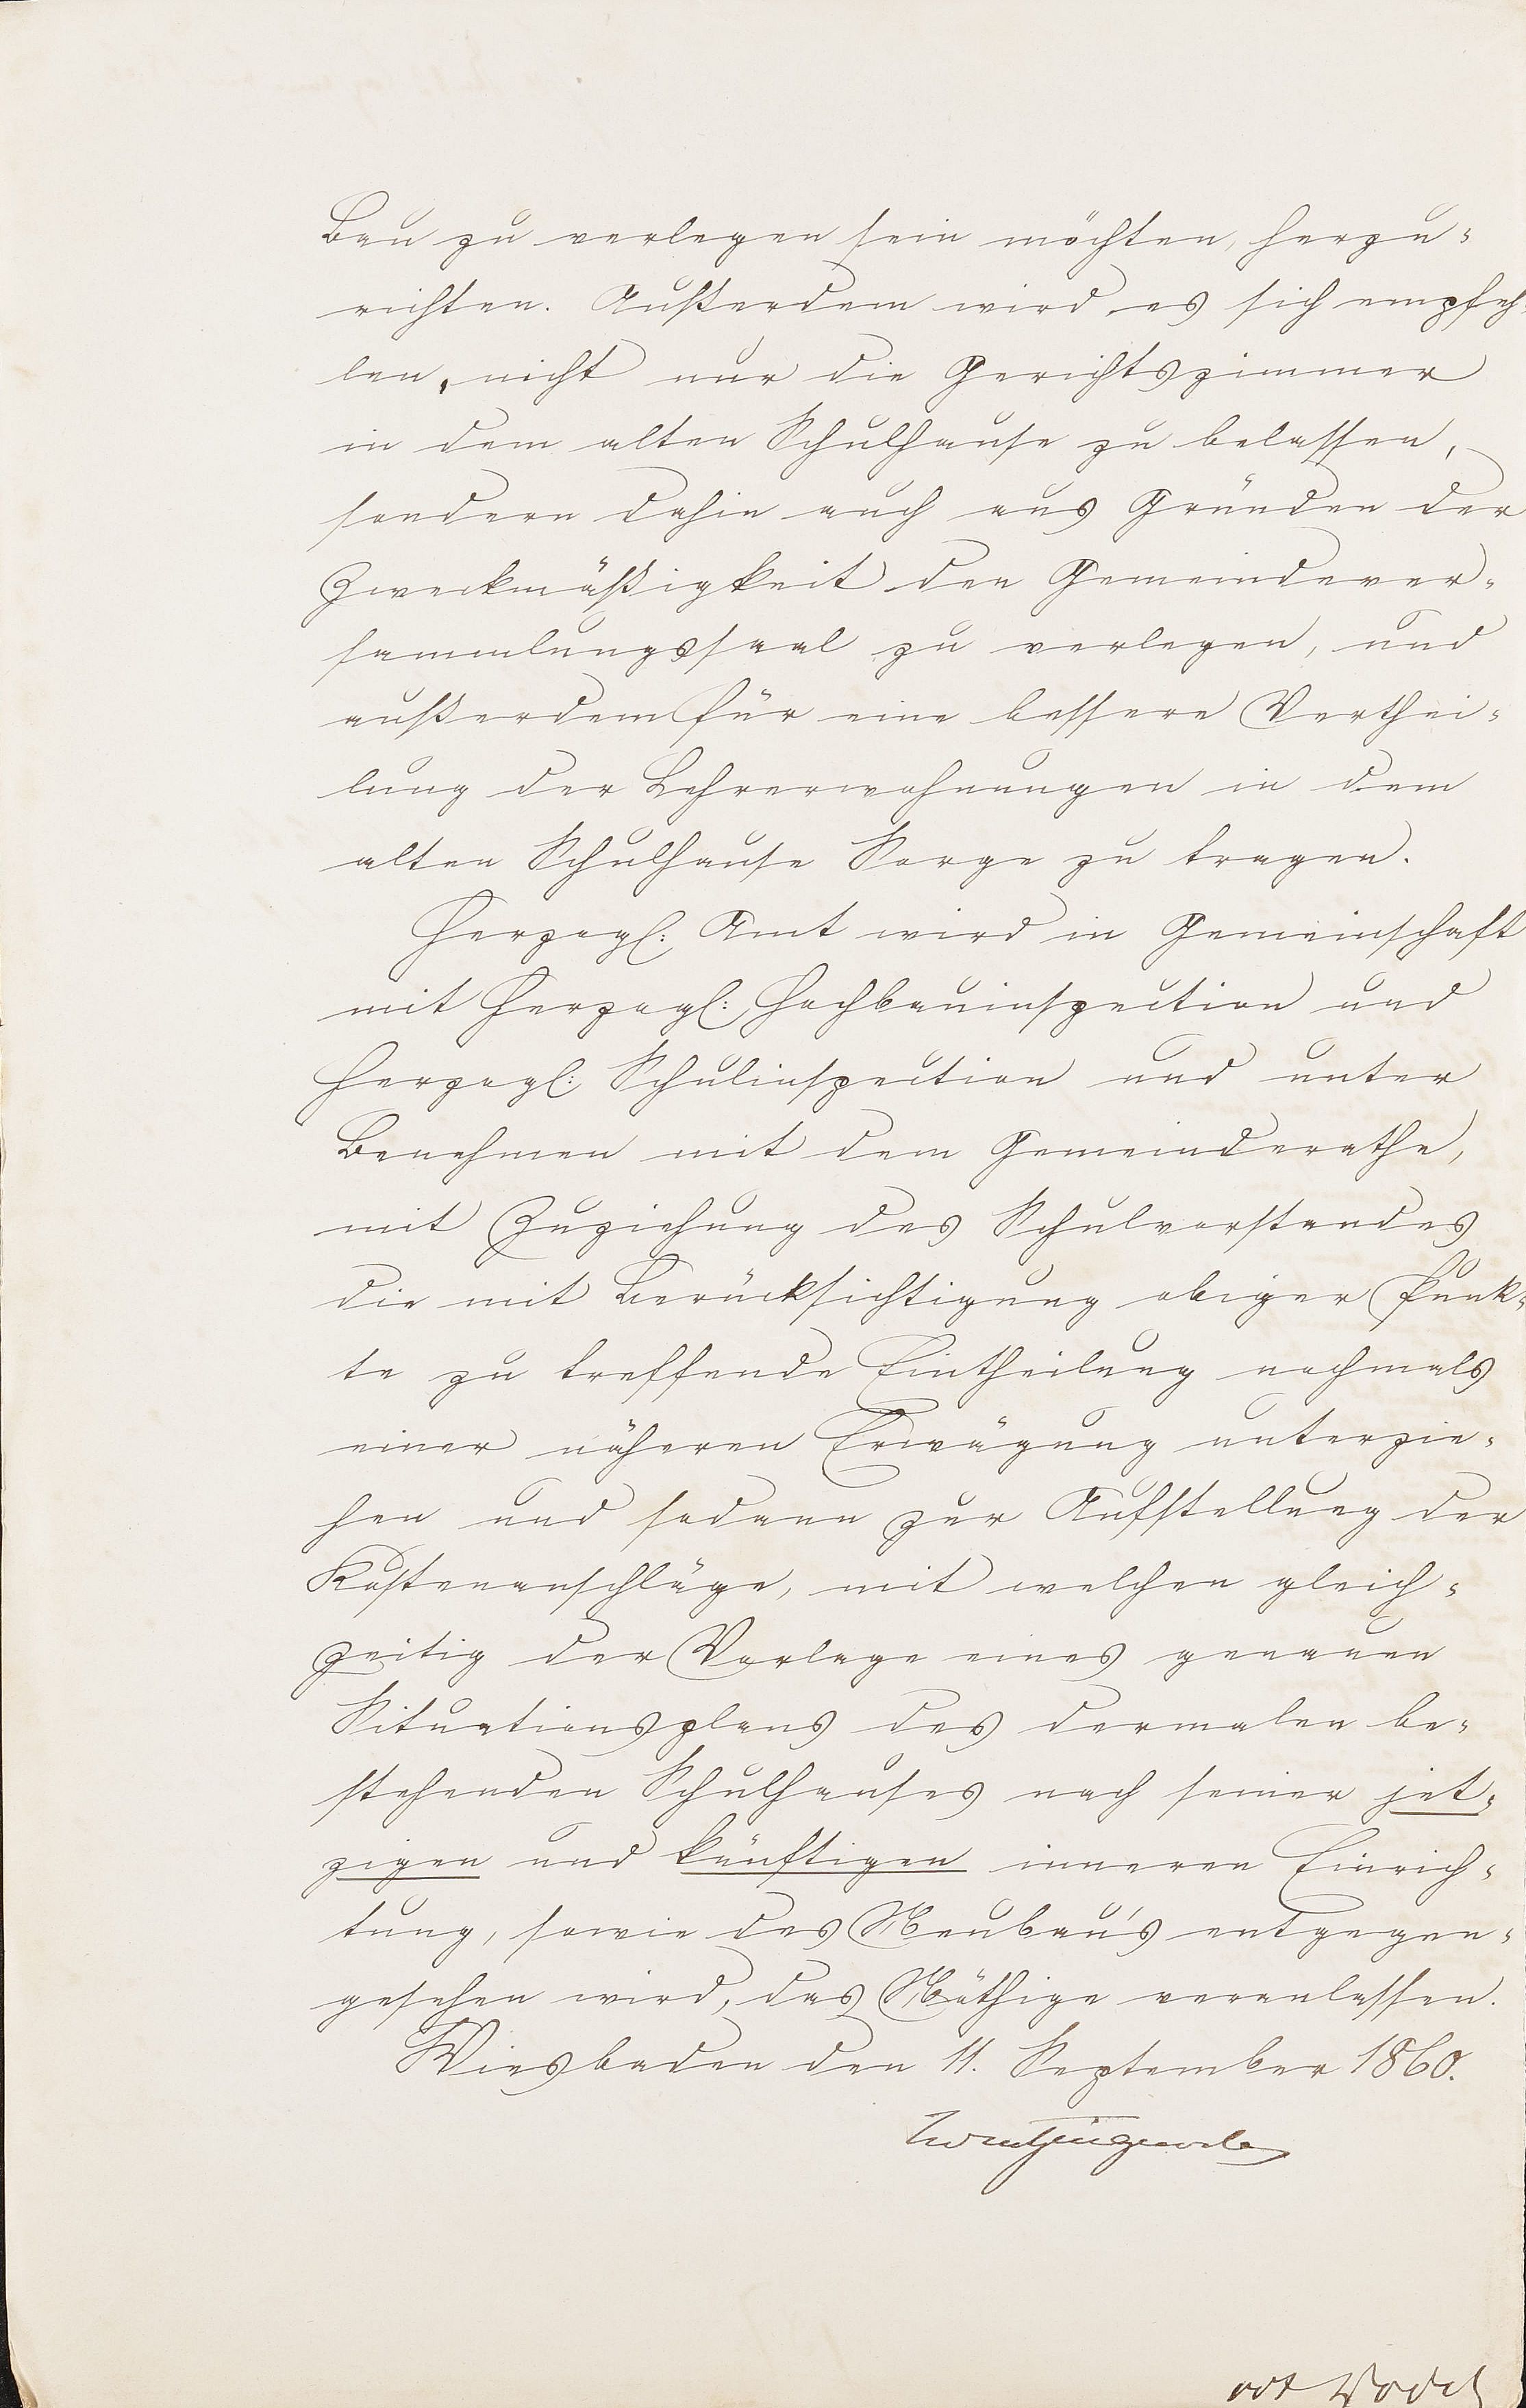 Bau zu verlegen sein möchten, herzu-
richten. Außerdem wird es sich empfeh-
len, nicht nur die Gerichtszimmer
in dem alten Schulhause zu belassen,
sondern dahin auch aus Gründen der
Zweckmäßigkeit den Gemeindever-
sammlungssaal zu verlegen, und
außerdem für eine bessere Verthei-
lung der Lehrerwohnungen in dem
alten Schulhause Sorge zu tragen.
Herzogl: Amt wird in Gemeinschaft
mit Herzogl: Hochbauinspection und
Herzogl: Schulinspection und unter
Benehmen mit dem Gemeinderathe,
mit Zuziehung des Schulvorstandes
die mit Berücksichtigung obiger Punk-
te zu treffende Eintheilung nochmals
einer näheren Erwägung unterzie-
hen und sodann zur Aufstellung der
Kostenanschläge, mit welchen gleich-
zeitig der Vorlage eines genauen
Situationsplans des dermalen be-
stehenden Schulhauses nach seiner jet-
zigen und künftigen inneren Einrich-
tung, sowie des Neubau's entgegen-
gesehen wird, das Nöthige veranlassen.
Wiesbaden den 11. September 1860.